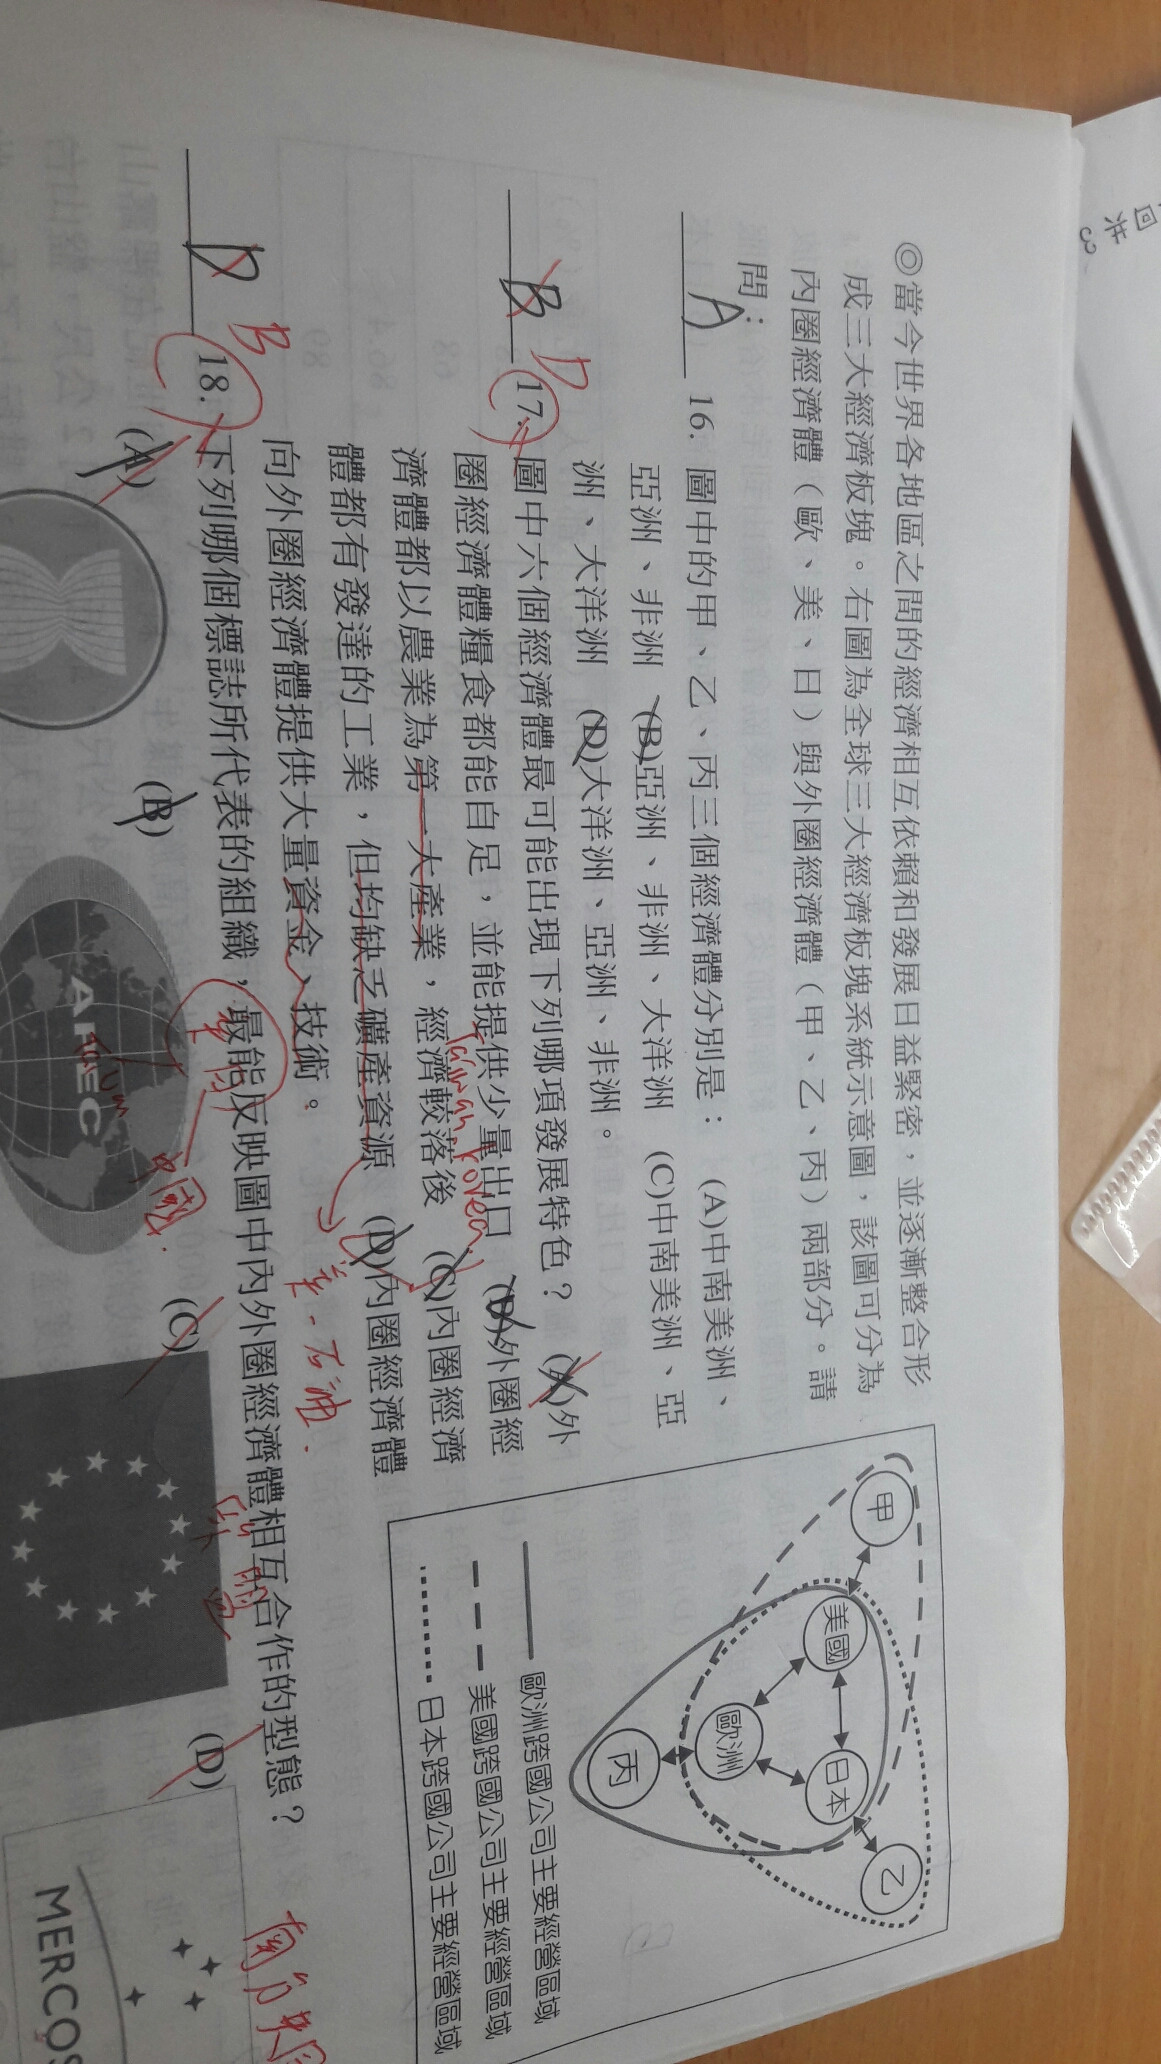 ◎當今世界各地區之間的經濟相互依賴和發展日益緊密，並逐漸整合形
成三大經濟板塊。右圖為全球三大經濟板塊系統示意圖，該圖可分為
內圈經濟體（歐、美、日）與外圈經濟體（甲、乙、丙）兩部分。請
問：
A 16. 圖中的甲、乙、丙三個經濟體分別是： (A)中南美洲、
亞洲、非洲 (B)亞洲、非洲、大洋洲 (C)中南美洲、亞
洲、大洋洲 (D)大洋洲、亞洲、非洲。
B D 17. 圖中六個經濟體最可能出現下列哪項發展特色？ (A)外
圈經濟體糧食都能自足，並能提供少量出口 (B)外圈經
濟體都以農業為第一大產業，經濟較落後 (C)內圈經濟
Taiwan, Korea
體都有發達的工業，但均缺乏礦產資源 (D)內圈經濟體
美-石油.
向外圈經濟體提供大量資金、技術。
D B 18. 下列哪個標誌所代表的組織，最能反映圖中內外圈經濟體相互合作的型態？
(A)
(B)
APEC
中國.
(C)
(D)
MERCOS
甲
美國
日本
乙
歐洲
丙
歐洲跨國公司主要經營區域
美國跨國公司主要經營區域
日本跨國公司主要經營區域
回
共
3